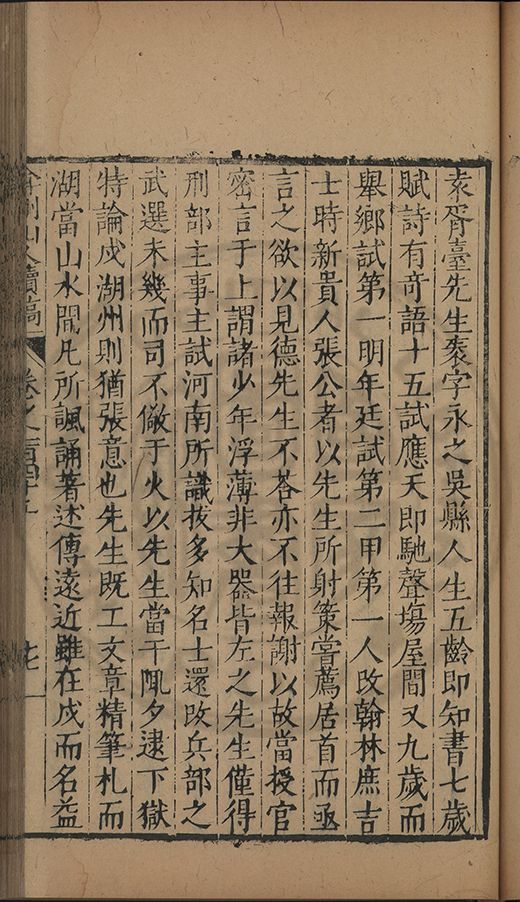 袁胥臺先生袠字永之吳縣人生五齡即知書七歲
賦詩有奇語十五試應天即馳聲塲屋間又九歲而
舉鄉試第一明年廷試第二甲第一人改翰林庶吉
士時新貴人張公者以先生所射策嘗薦居首而亟
言之欲以見德先生不荅亦不往報謝以故當授官
密言于上謂諸少年浮薄非大器皆左之先生僅得
刑部主事主試河南所識拔多知名士還改兵部之
武選未幾而司不儆于火以先生當干陬夕逮下獄
特論戍湖州則猶張意也先生既工文章精筆札而
湖當山水間凡所諷誦著述傳遠近雖在戍而名益
弇州山人續稿 卷之百四十五